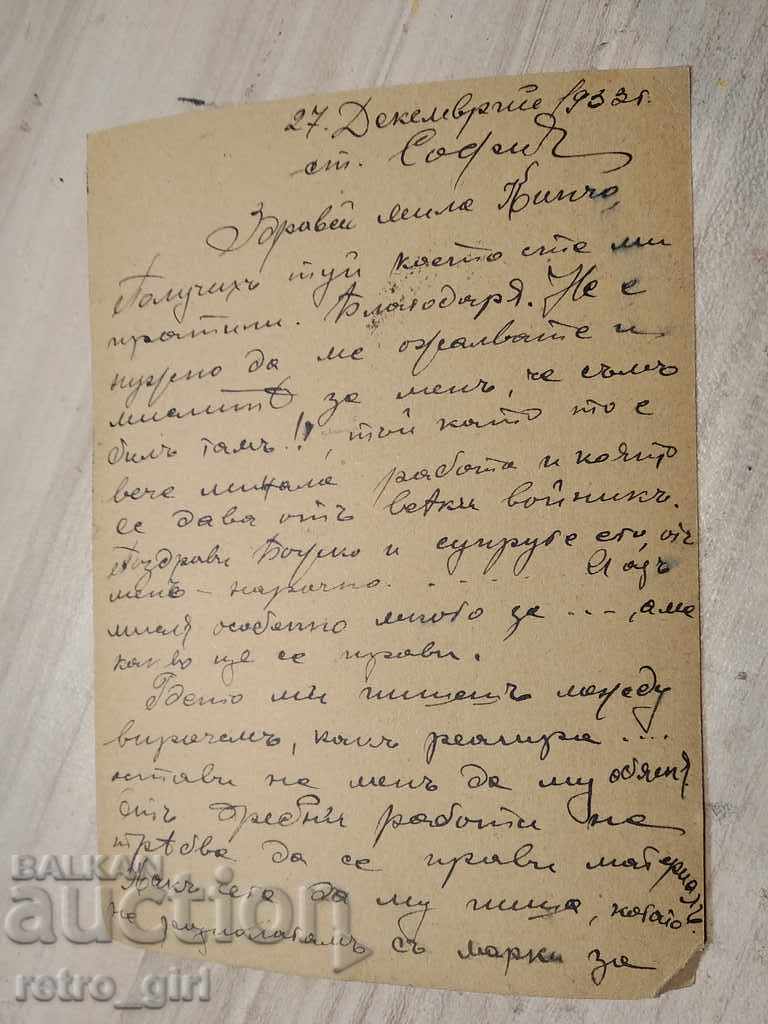 27. Декемврий 1933г.
ст. София
Здравей мила
Получихъ туй което сте ми
пратили. Благодаря. Не е
нужно да ме ожалвате и
мислите за менъ, че съмъ
билъ тамъ!!, тъй като то е
вече минала работа и която
се дава отъ всѣки войникъ.
Поздрави и супруге его, отъ
менъ - нарочно. . . . .
мисля особенно много за ..., ама
какво ще се прави.
Гдето ми пишешъ между
другото, какъ реагира ....
остави на менъ да му обясня.
Отъ дребни работи не
трѣбва да се прави материалъ.
Какъ ще да му пиша, когато
не разполагамъ съ марки за
BALKAN
auction
retro_girl